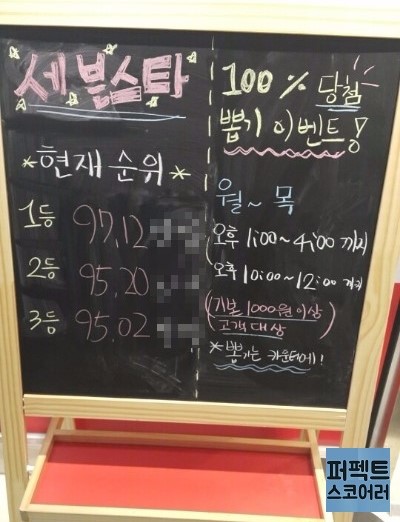 세븐스타
*현재 순위*
1등 97.12
2등 95.20
3등 95.02
100% 당첨
뽑기 이벤트!
월~목
오후 1:00~4:00 까지
오후 10:00~12:00 까지
(기본 1000원 이상)
고객 대상
*뽑기는 카운터에!
퍼펙트
스코어러